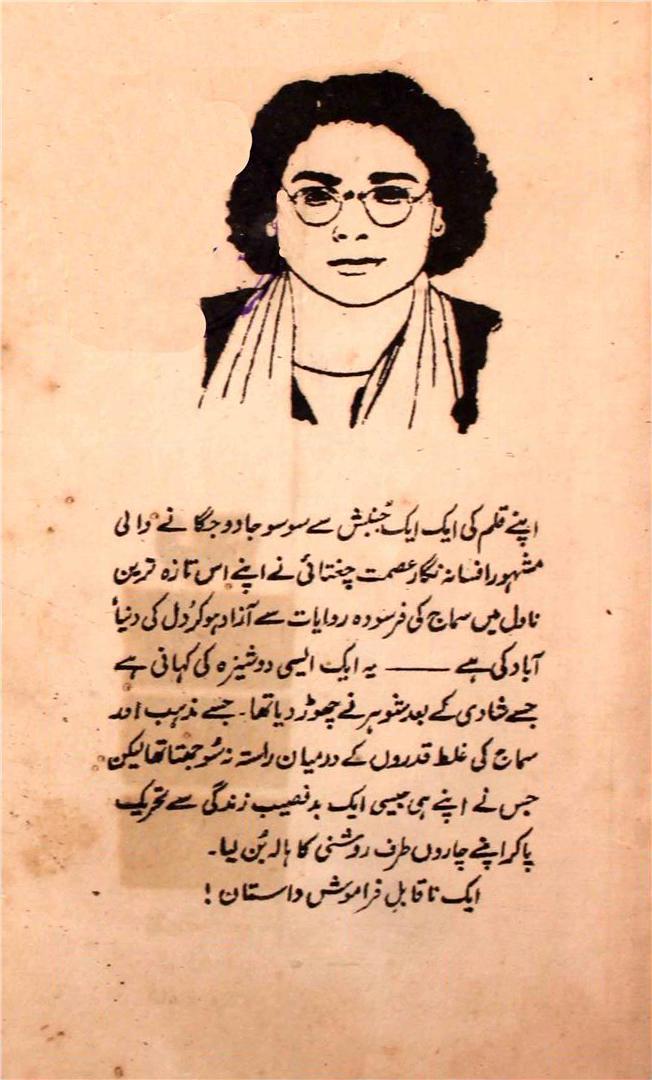 اپنے قلم کی ایک ایک جُنبش سے سو سو جادو جگانے والی
مشہور افسانہ نگار عصمت چغتائی نے اپنے اس تازہ ترین
ناول میں سماج کی فرسودہ روایات سے آزاد ہو کر دُل کی دنیا'
آباد کی ہے ——— یہ ایک ایسی دوشیزہ کی کہانی ہے
جسے شادی کے بعد شوہر نے چھوڑ دیا تھا۔ جسے مذہب اور
سماج کی غلط قدروں کے درمیان راستہ نہ سُوجھتا تھا لیکن
جس نے اپنے ہی جیسی ایک بدنصیب زندگی سے تحریک
پا کر اپنے چاروں طرف روشنی کا ہالہ بُن لیا۔
ایک ناقابلِ فراموش داستان !